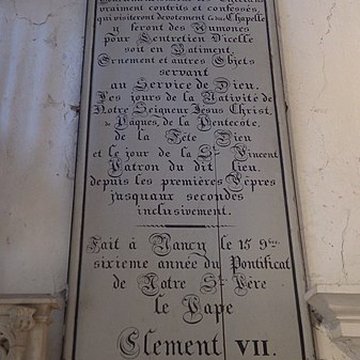 vraiment contrits et confessés,
qui visiteront devotement le dite Chapelle
y feront des Aumones
pour l'entretien d'icelle
soit en Batiment,
Ornement et autres Objets
servant
au Service de Dieu.
Les jours de la Nativité de
Notre Seigneur Jesus Christ,
de Pâques, de la Pentecôte,
de la Fête Dieu
et le jour de la St Vincent
Patron du dit lieu,
depuis les premières Vêpres
jusquaux secondes
inclusivement.
Fait à Nancy le 15 9bre
sixieme année du Pontificat
de Notre St Père
le Pape
Clement VII.